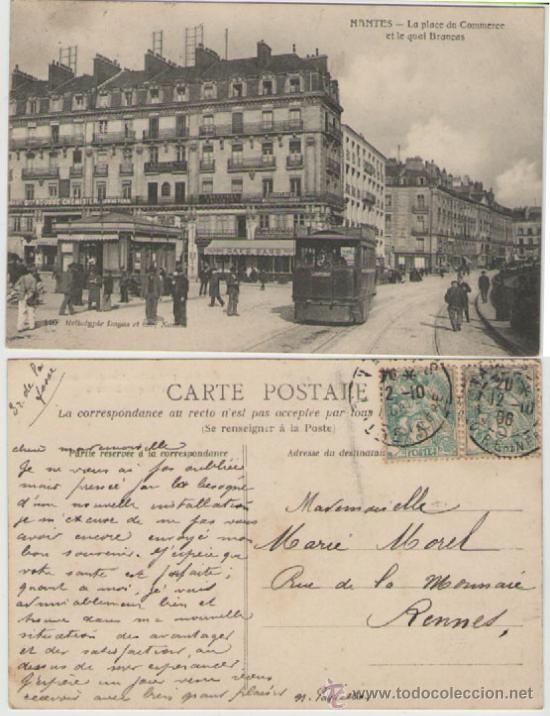 NANTES — La place du Commerce
et le quai Brancas
CARTE POSTALE
La correspondance au recto n'est pas acceptée par tous
(Se renseigner à la Poste)
Partie réservée à la correspondance
Adresse du destinataire
POSTES
chère mademoiselle
Je ne vous ai pas oubliée
mais pressé par la besogne
d'une nouvelle installation
je m'excuse de ne pas vous
avoir encore envoyé mon
bon souvenir. J'espère que
votre santé est parfaite ;
quant à moi, je vais
admirablement bien et
trouve dans ma nouvelle
situation des avantages
et des satisfactions au
dessus de mes espérances
J'espère un jour venir vous
recevoir avec bien grand plaisir
Mademoiselle
Marie Morel
Rue de la Monnaie
Rennes,
todocoleccion
www.todocoleccion.net